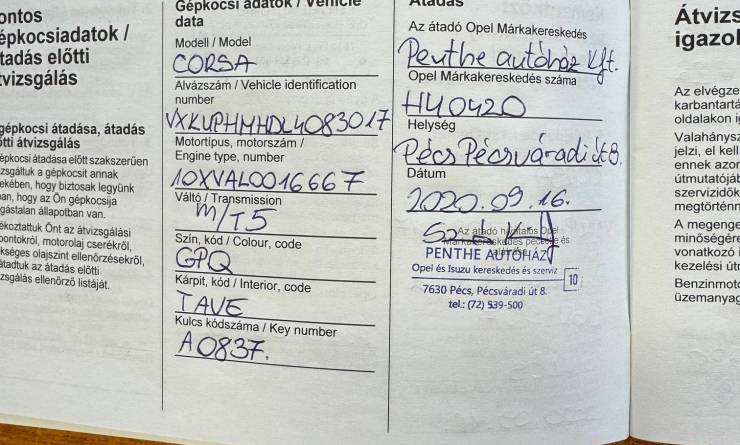 ontos
épkocsiadatok /
tadás előtti
tvizsgálás
gépkocsi átadása, átadás
őtti átvizsgálás
épkocsi átadása előtt szakszerűen
zsgáltuk a gépkocsit annak
ekében, hogy biztosak legyünk
an, hogy az Ön gépkocsija
gástalan állapotban van.
ékoztattuk Önt az átvizsgálási
pontokról, motorolaj cserékről,
kséges olajszint ellenőrzésekről,
átadtuk az átadás előtti
zsgálás ellenőrző listáját.
Gépkocsi adatok / Vehicle
data
Modell / Model
CORSA
Alvázszám / Vehicle identification
number
VXKUPHMHDL4083017
Motortípus, motorszám /
Engine type, number
10XVAL0016667
Váltó / Transmission
M/T5
Szín, kód / Colour, code
GPQ
Kárpit, kód / Interior, code
TAVE
Kulcs kódszáma / Key number
A0837.
Átadás
Az átadó Opel Márkakereskedés
Penthe autóház Kft.
Opel Márkakereskedés száma
HU0420
Helység
Pécs Pécsváradi út 8.
Dátum
2020.09.16.
Az átadó hivatalos Opel
Márkakereskedés pecsétje és
PENTHE AUTÓHÁZ
Opel és Isuzu kereskedés és szerviz
10
7630 Pécs, Pécsváradi út 8.
tel.: (72) 539-500
Átvizs
igazol
Az elvégze
karbantartá
oldalakon i
Valahánysz
jelzi, el kell
ennek azor
útmutatójáb
szervizidők
megtörténn
A megenge
minőségére
vonatkozó i
kezelési útr
Benzinmoto
üzemanyag